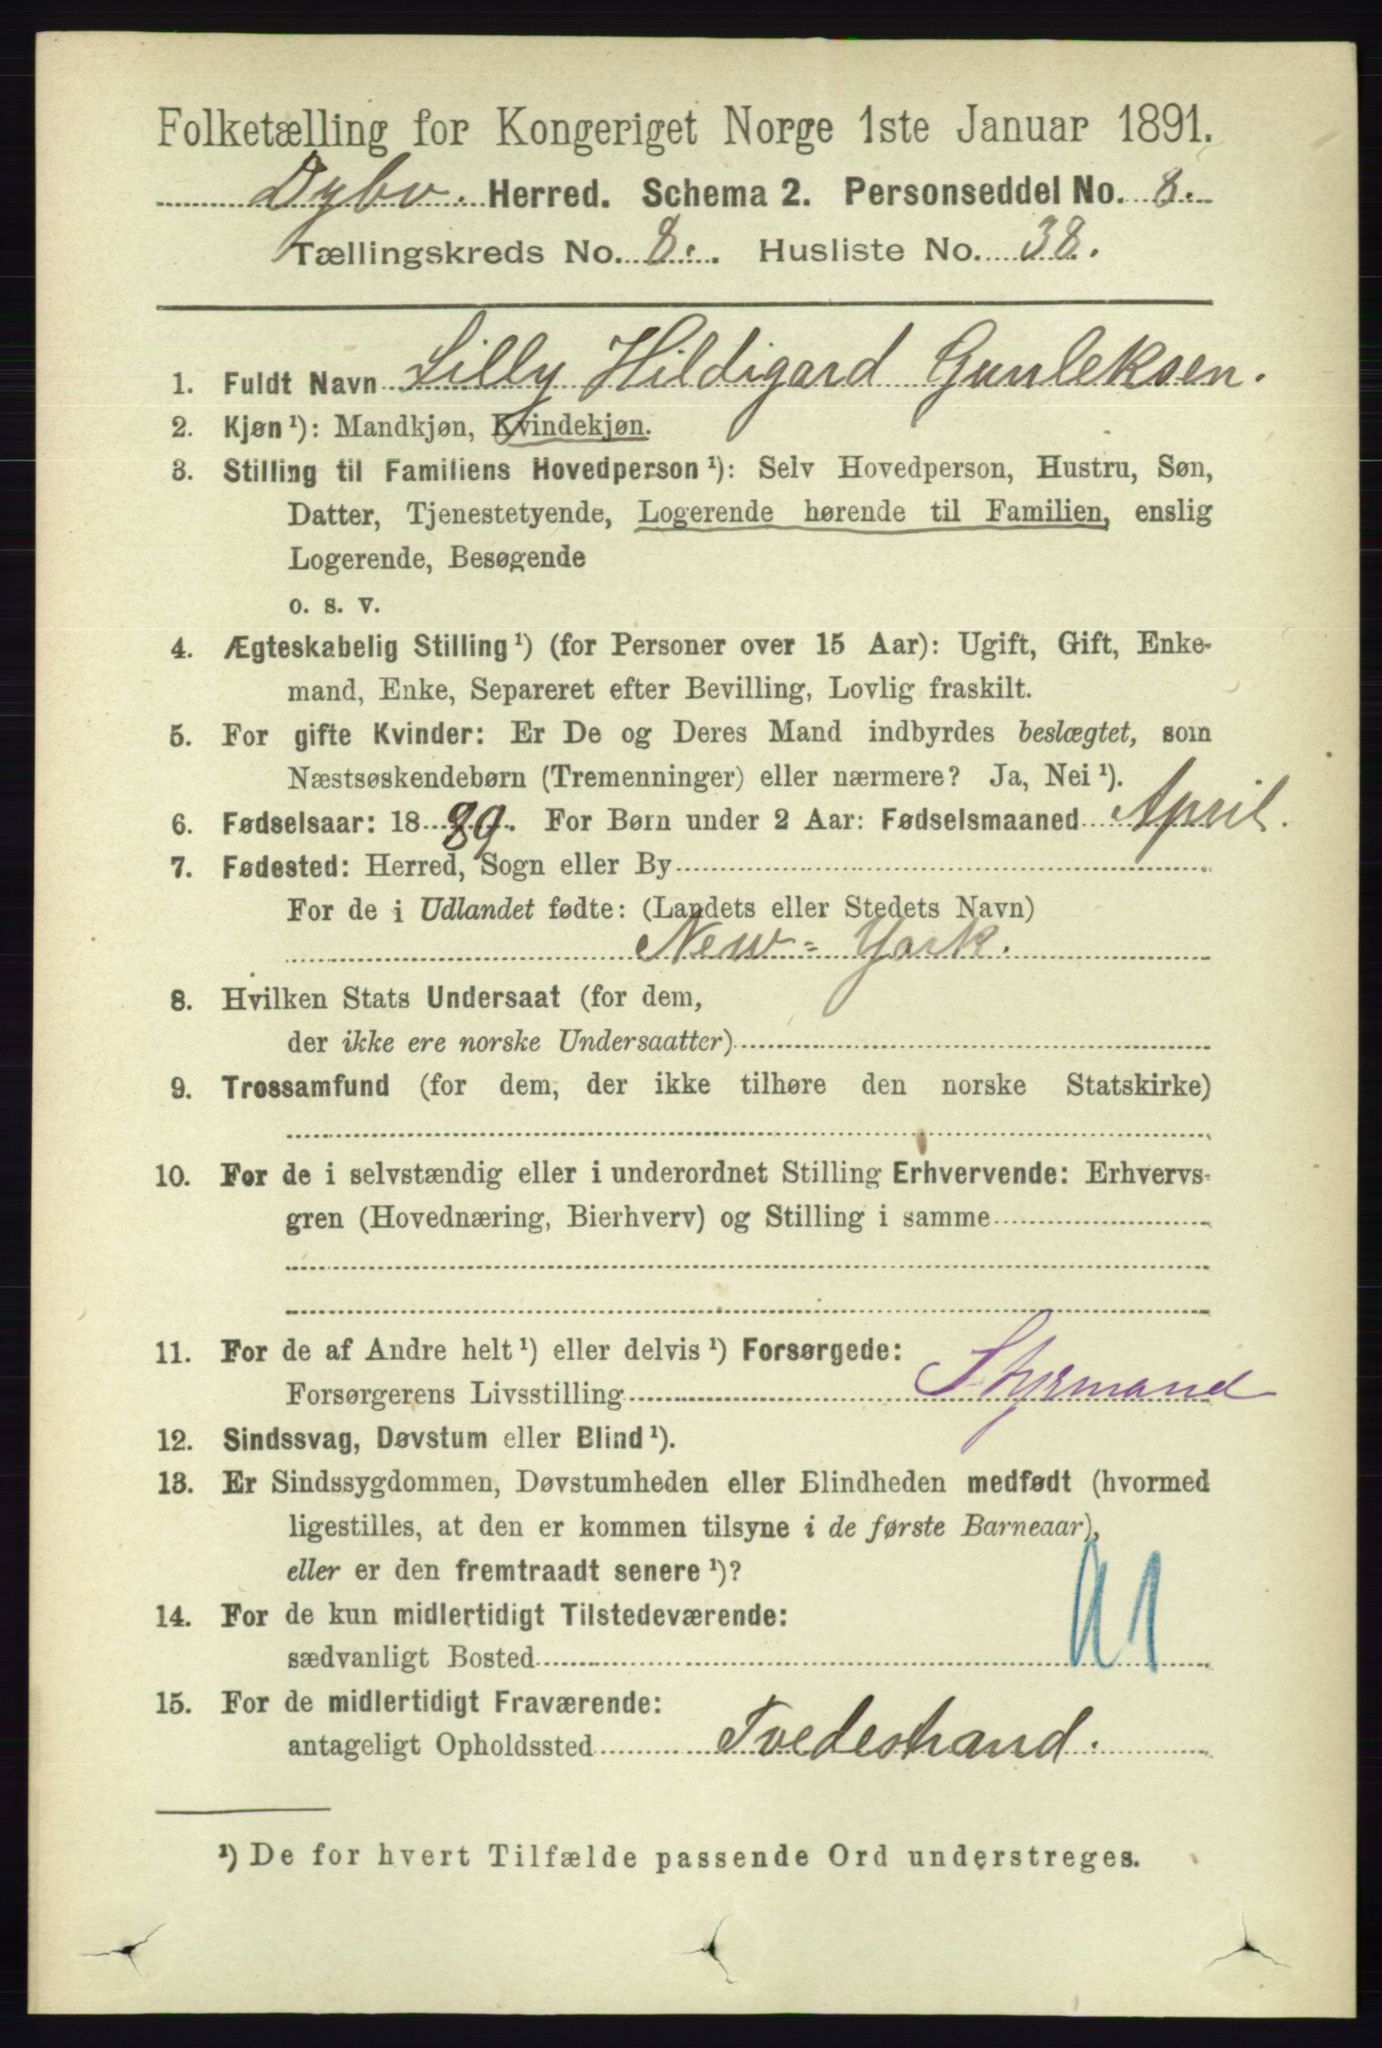 Folketælling for Kongeriget Norge 1ste Januar 1891.
Dybv. Herred. Schema 2. Personseddel No. 8.
Tællingskreds No. 8. Husliste No. 38.
1. Fuldt Navn Lilly Hildigard Gunleksen.
2. Kjøn¹): Mandkjøn, Kvindekjøn.
3. Stilling til Familiens Hovedperson¹): Selv Hovedperson, Hustru, Søn,
Datter, Tjenestetyende, Logerende hørende til Familien, enslig
Logerende, Besøgende
o. s. v.
4. Ægteskabelig Stilling¹) (for Personer over 15 Aar): Ugift, Gift, Enke-
mand, Enke, Separeret efter Bevilling, Lovlig fraskilt.
5. For gifte Kvinder: Er De og Deres Mand indbyrdes beslægtet, som
Næstsøskendebørn (Tremenninger) eller nærmere? Ja, Nei¹).
6. Fødselsaar: 1889. For Børn under 2 Aar: Fødselsmaaned April.
7. Fødested: Herred, Sogn eller By
For de i Udlandet fødte: (Landets eller Stedets Navn)
New=York.
8. Hvilken Stats Undersaat (for dem,
der ikke ere norske Undersaatter)
9. Trossamfund (for dem, der ikke tilhøre den norske Statskirke)
10. For de i selvstændig eller i underordnet Stilling Erhvervende: Erhvervs-
gren (Hovednæring, Bierhverv) og Stilling i samme
11. For de af Andre helt¹) eller delvis¹) Forsørgede:
Forsørgerens Livsstilling Styrmand
12. Sindssvag, Døvstum eller Blind¹).
13. Er Sindssygdommen, Døvstumheden eller Blindheden medfødt (hvormed
ligestilles, at den er kommen tilsyne i de første Barneaar),
eller er den fremtraadt senere¹)?
14. For de kun midlertidigt Tilstedeværende:
sædvanligt Bosted
15. For de midlertidigt Fraværende:
antageligt Opholdssted Tvedestrand.
¹) De for hvert Tilfælde passende Ord understreges.